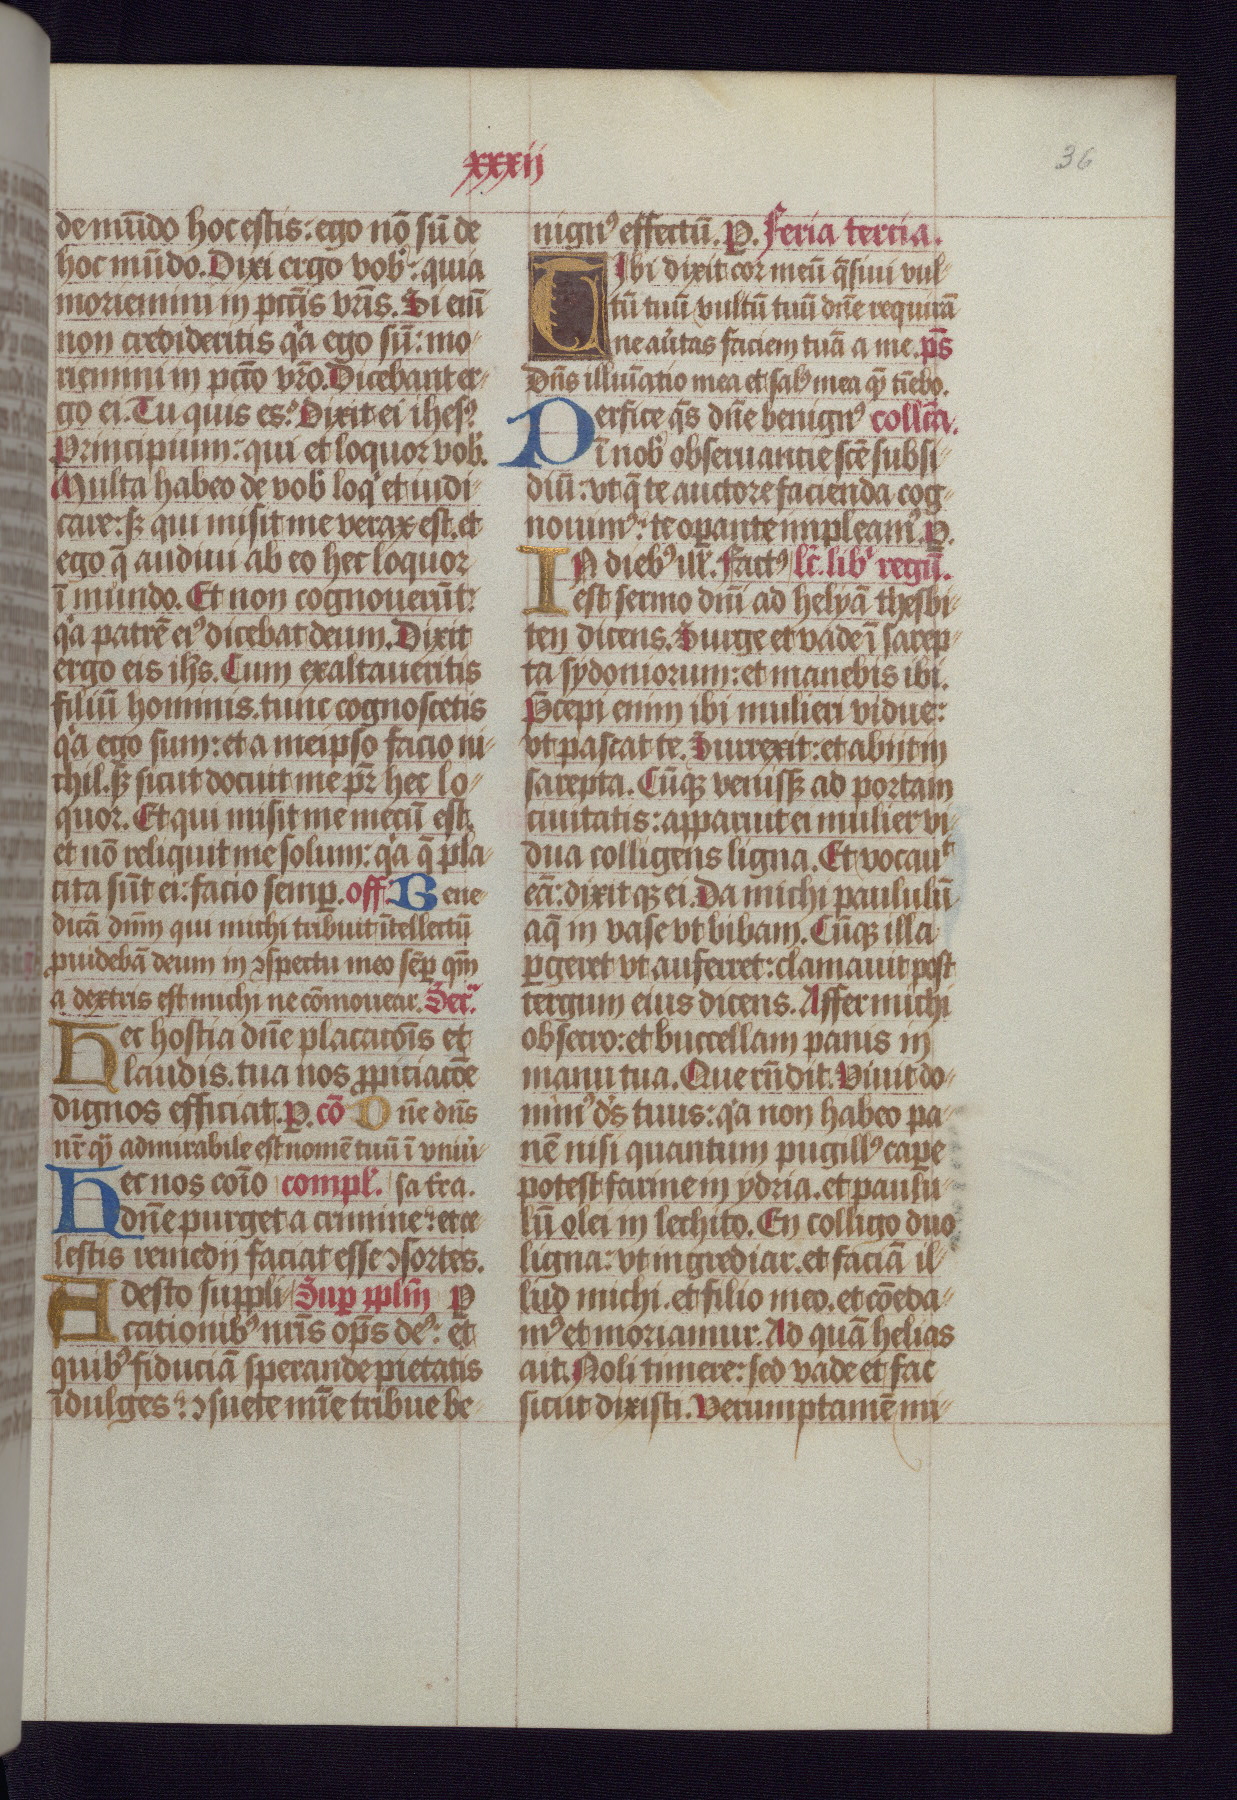 xxxij
36
de mūdo hoc estis: ego nō sū de
hoc mūdo. Dixi ergo vob̾: quia
moriemini in pctīs vr̄is. Si enī
non credideritis qͥa ego sū: mo-
riemini in pctō vr̄o. Dicebant er-
go ei. Tu quis es? Dixit ei ihesꝰ
Principium: qui et loquor vob̾.
Multa habeo de vob̾ loqͥ et iudi-
care: sꝫ qui misit me verax est. et
ego q̄ audiui ab eo hec loquor
ī mundo. Et non cognouerūt:
qͥa patrē eiꝰ dicebat deum. Dixit
ergo eis ihs̄. Cum exaltaueritis
filiū hominis. tunc cognoscetis
qͥa ego sum: et a meipso facio ni-
chil. sꝫ sicut docuit me pr̄ hec lo-
quor. Et qui misit me mecū est.
et nō reliquit me solum: qͥa q̄ pla-
cita sūt ei: facio semꝑ. off. Bene-
dicā dnm̄ qui michi tribuit ītellectū
ꝓuidebā deum in ꝯspectu meo sēꝑ qm̄
a dextris est michi ne cōmouear. Secͬ
Hec hostia dn̄e placatōis et
laudis. tua nos ꝓpiciatōe
dignos efficiat. P. cō Dn̄e dn̄s
nr̄ qͣꝫ admirabile est nomē tuū ī vniủ-
Hec nos coīo compl̾. sa t̄ra.
dn̄e purget a crimine: et ce-
lestis remedij faciat esse ꝯsortes.
Adesto suppli- Suꝑ pplm̄ P
cationibꝰ nr̄is op̄s deꝰ: et
quibꝰ fiduciā sperande pietatis
īdulges: ꝯsuete mīe tribue be-
nignꝰ effectū. P. Feria tercia.
Tibi dixit cor meū q̄siui vul-
tū tuū vultū tuū dn̄e requirā
ne aủtas faciem tuā a me. ps̄
Dn̄s illuīatio mea et salꝰ mea q̄ tīebo.
Perfice q̄s dn̄e benignꝰ collc̄a.
ī nob̾ obseruantie scē subsi-
diū: vt q̄ te auctore facienda cog-
nouimꝰ: te oꝑante impleamꝰ. P.
IN diebꝰ ill̾. Factꝰ lc̄. lib̾ regū.
est sermo dnī ad helyā thesbi-
ten dicens. Surge et vade ī sarep-
ta sydoniorum: et manebis ibi.
Precepi enim ibi mulieri vidue:
vt pascat te. Surrexit: et abijt in
sarepta. Cūqꝫ venissꝫ ad portam
ciuitatis: apparuit ei mulier vi-
dua colligens ligna. Et vocauͭ
eā: dixitqꝫ ei. Da michi paululū
aq̄ in vase vt bibam. Cūqꝫ illa
ꝑgeret vt auferret: clamauit post
tergum eius dicens. Affer michi
obsecro: et buccellam panis in
manu tua. Que rn̄dit. Viuit do-
minꝰ ds̄ tuus: qͥa non habeo pa-
nē nisi quantum pugillꝰ caꝑe
potest farine in ydria. et paulu-
lū olei in lechito. En colligo duo
ligna: vt ingrediar. et faciā il-
lud michi. et filio meo. et cōeda-
mꝰ et moriamur. Ad quā helias
ait. Noli timere: sed vade et fac
sicut dixisti. Verumptamē mi-